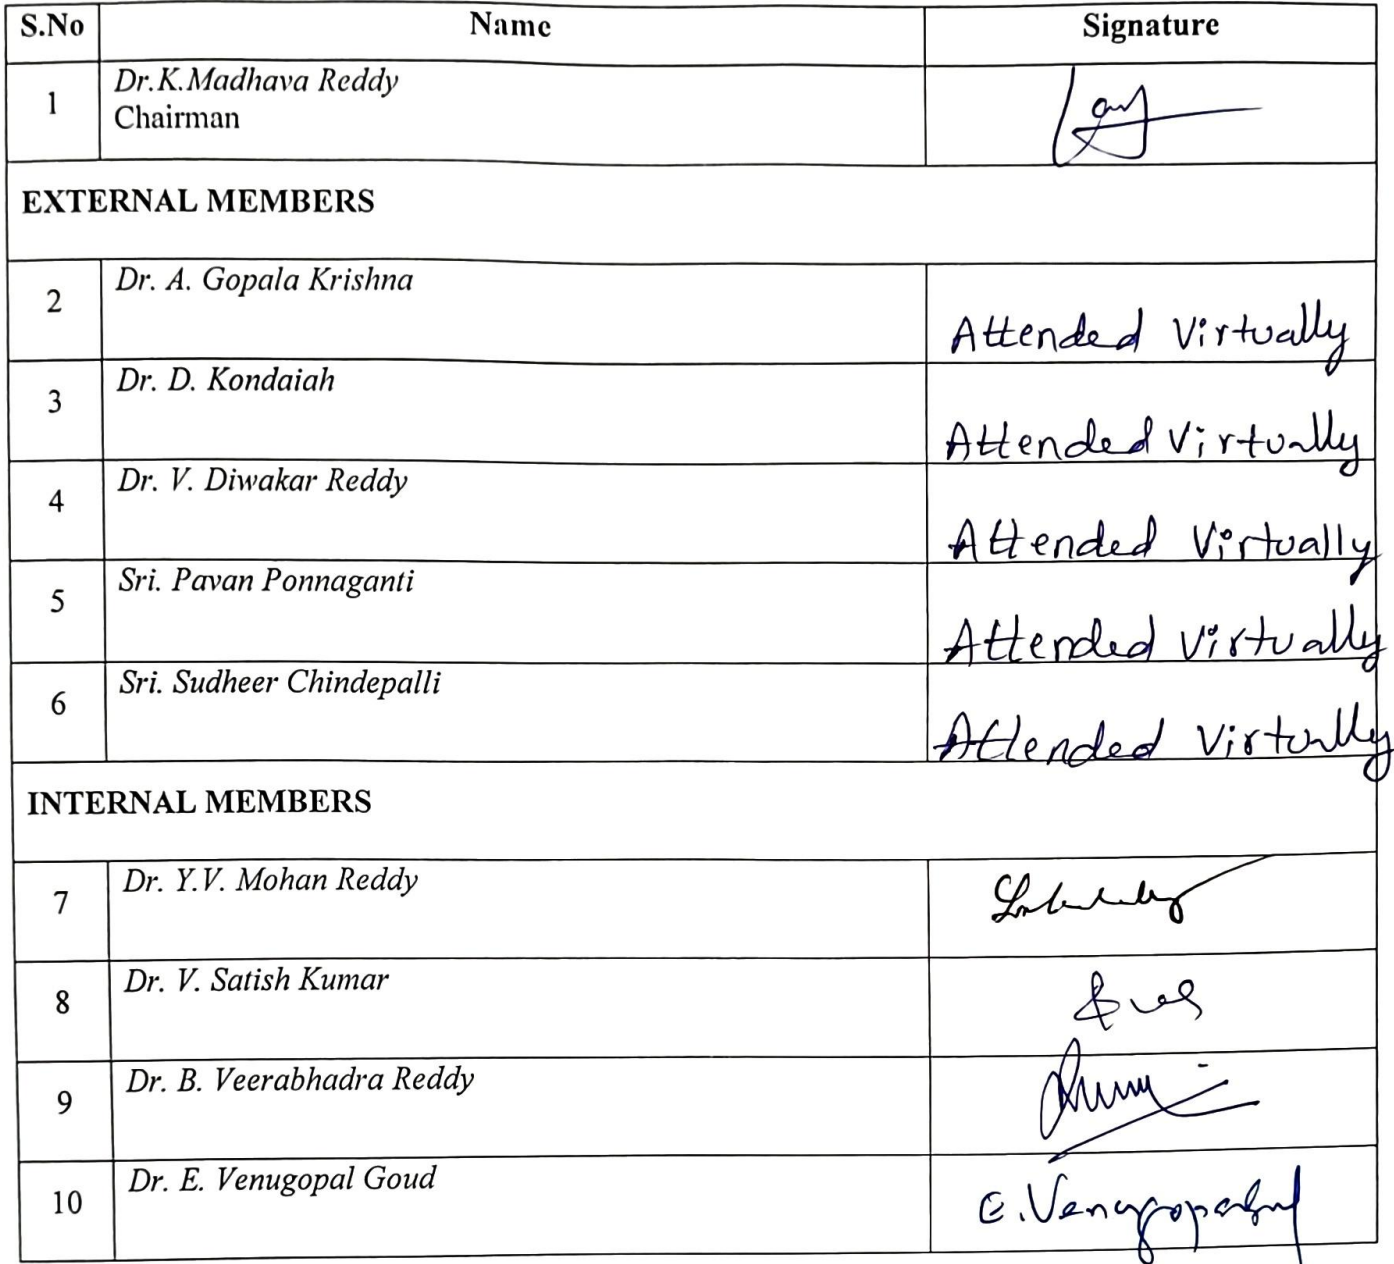 S.No Name Signature
1 Dr.K.Madhava Reddy
Chairman
EXTERNAL MEMBERS
2 Dr. A. Gopala Krishna
Attended Virtually
3 Dr. D. Kondaiah
Attended Virtually
4 Dr. V. Diwakar Reddy
Attended Virtually
5 Sri. Pavan Ponnaganti
Attended Virtually
6 Sri. Sudheer Chindepalli
Attended Virtually
INTERNAL MEMBERS
7 Dr. Y.V. Mohan Reddy
8 Dr. V. Satish Kumar
9 Dr. B. Veerabhadra Reddy
10 Dr. E. Venugopal Goud
E.Venugopal